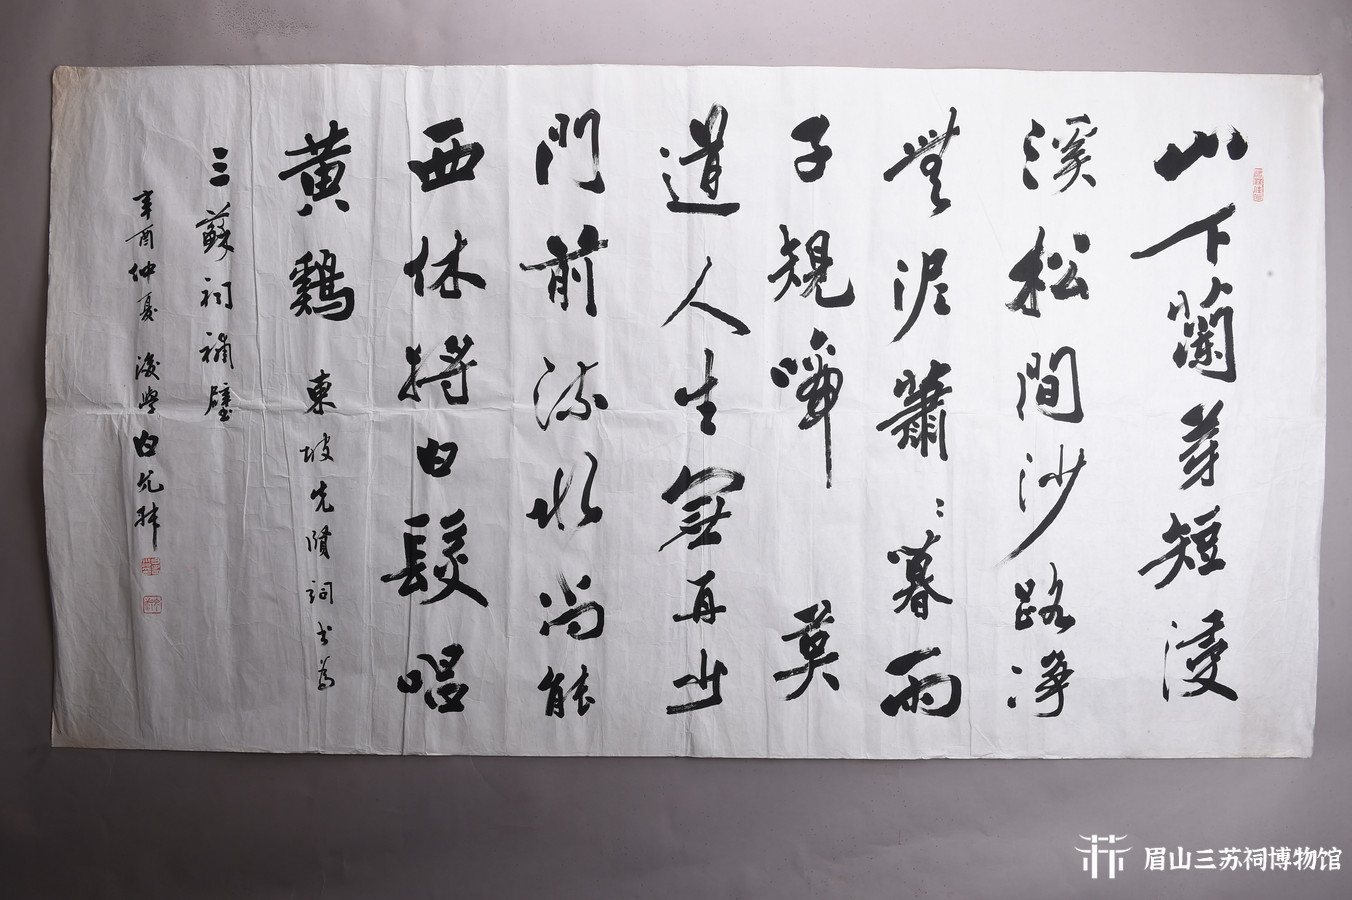 山下蘭芽短浸
溪松間沙路淨
無泥蕭〻暮雨
子規啼 莫
道人生無再少
門前流水尚能
西休將白髮唱
黃鷄 東坡先賢詞書為
三蘇祠補壁
辛酉仲夏 後學白允叔
眉山三苏祠博物馆